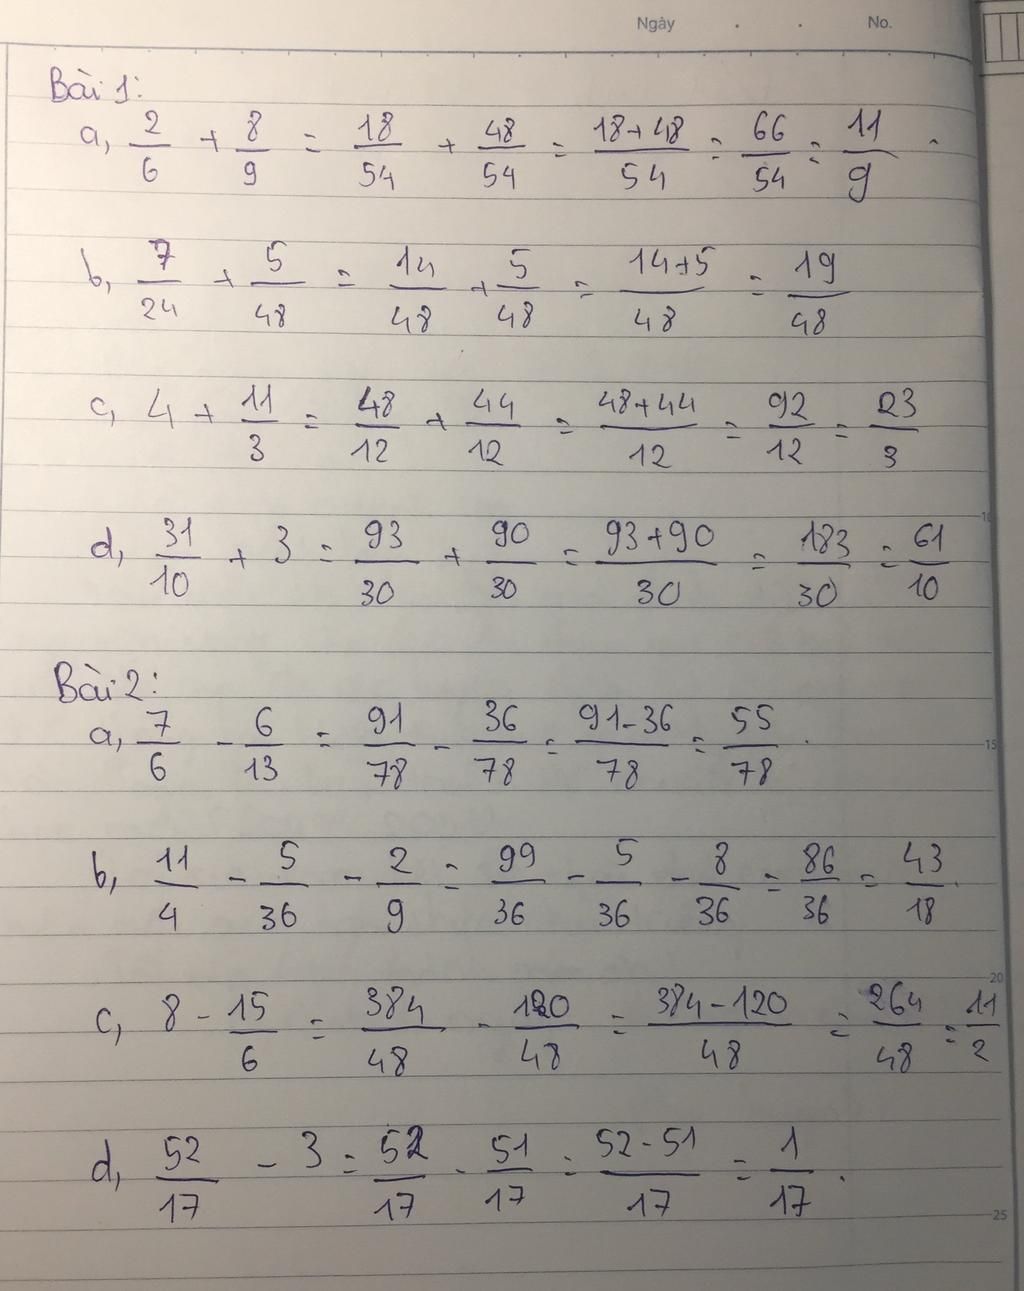 Ngày . . No.
Bài 1:
a, 2/6 + 8/9 = 18/54 + 48/54 = 18+48/54 = 66/54 = 11/9 .
b, 7/24 + 5/48 = 14/48 + 5/48 = 14+5/48 = 19/48
c, 4 + 11/3 = 48/12 + 44/12 = 48+44/12 = 92/12 = 23/3
10
d, 31/10 + 3 = 93/30 + 90/30 = 93+90/30 = 183/30 = 61/10
Bài 2:
a, 7/6 - 6/13 = 91/78 - 36/78 = 91-36/78 = 55/78 .
15
b, 11/4 - 5/36 - 2/9 = 99/36 - 5/36 - 8/36 = 86/36 = 43/18 .
20
c, 8 - 15/6 = 384/48 - 120/48 = 384-120/48 = 264/48 = 11/2
d, 52/17 - 3 = 52/17 - 51/17 = 52-51/17 = 1/17 .
25